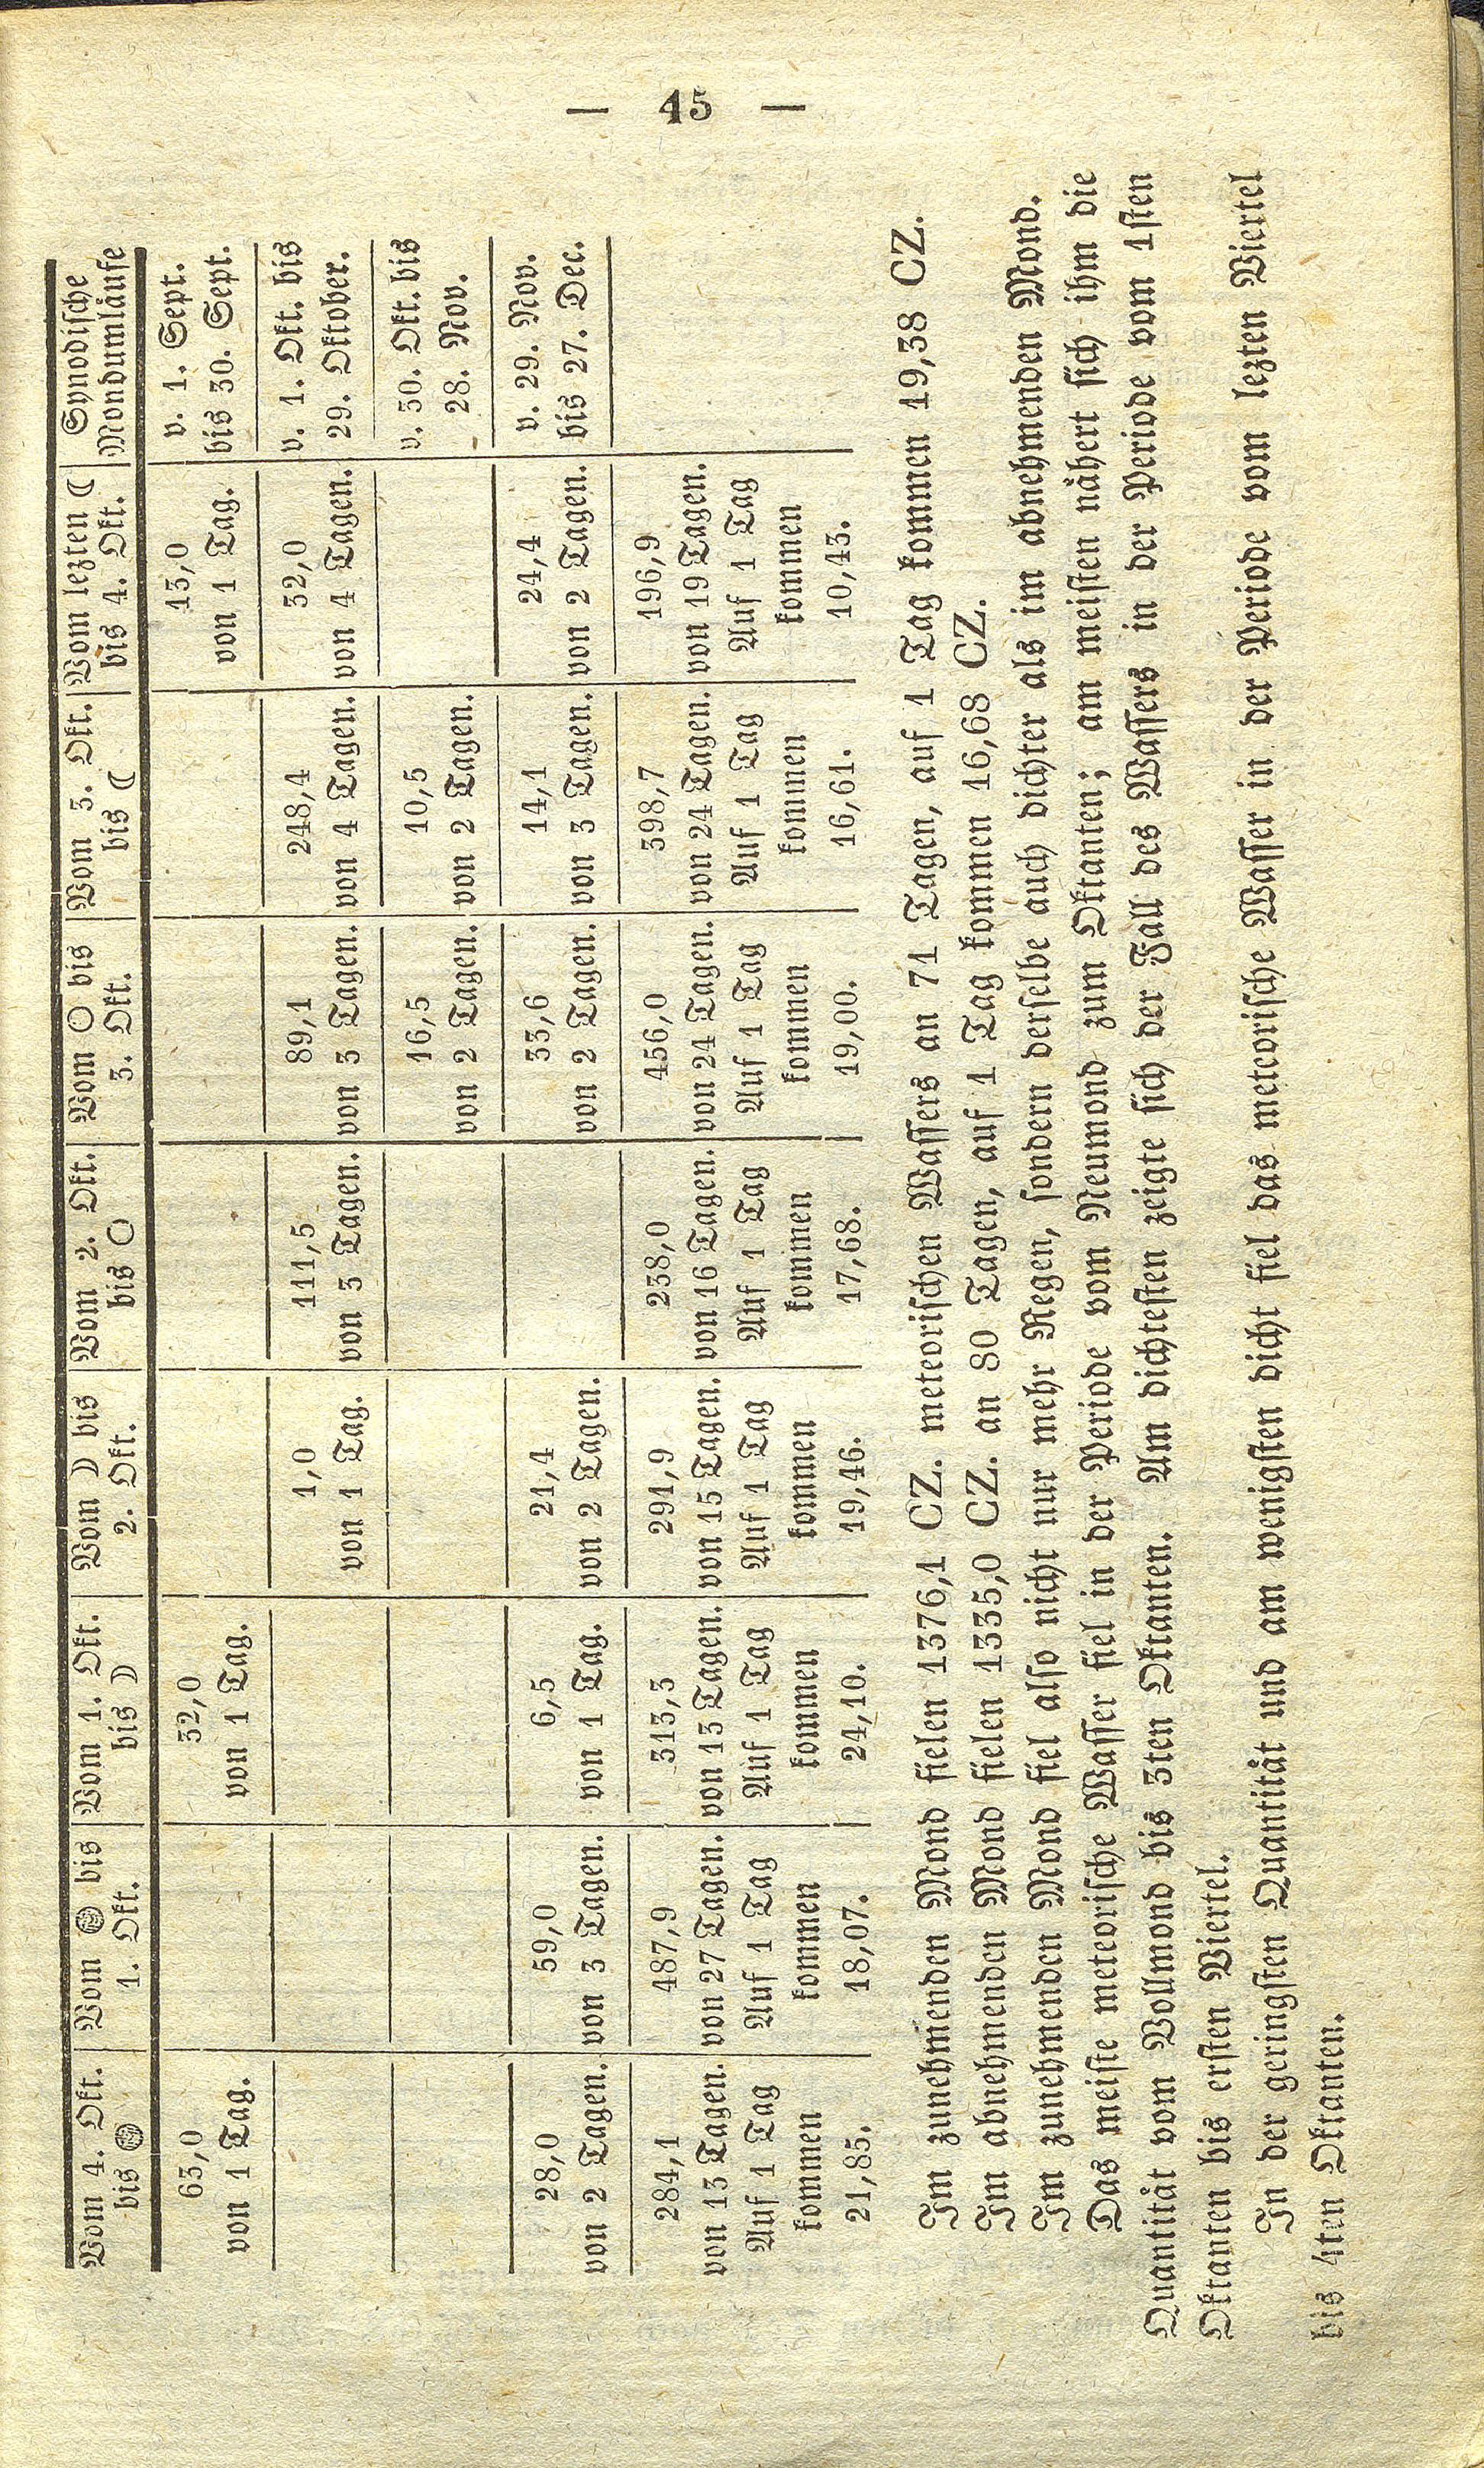 — 45 —
Vom 4. Okt. | Vom 🌑 bis | Vom 1. Okt. | Vom ☽ bis | Vom 2. Okt. | Vom ○ bis | Vom 3. Okt. | Vom lezten ☾ | Synodische
bis 🌑 | 1. Okt. | bis ☽ | 2. Okt. | bis ○ | 3. Okt. | bis ☾ | bis 4. Okt. | Mondumläufe
63,0 | | 32,0 | | | | | 13,0 | v. 1. Sept.
von 1 Tag. | | von 1 Tag. | | | | | von 1 Tag. | bis 30. Sept.
| | | 1,0 | 111,5 | 89,1 | 248,4 | 32,0 | v. 1. Okt. bis
| | | von 1 Tag. | von 3 Tagen. | von 3 Tagen. | von 4 Tagen. | von 4 Tagen. | 29. Oktober.
| | | | | 16,5 | 10,5 | | v. 30. Okt. bis
| | | | | von 2 Tagen. | von 2 Tagen. | | 28. Nov.
28,0 | 59,0 | 6,5 | 21,4 | | 33,6 | 14,1 | 24,4 | v. 29. Nov.
von 2 Tagen. | von 3 Tagen. | von 1 Tag. | von 2 Tagen. | | von 2 Tagen. | von 3 Tagen. | von 2 Tagen. | bis 27. Dec.
284,1 | 487,9 | 313,3 | 291,9 | 238,0 | 456,0 | 398,7 | 196,9
von 13 Tagen. | von 27 Tagen. | von 13 Tagen. | von 15 Tagen. | von 16 Tagen. | von 24 Tagen. | von 24 Tagen. | von 19 Tagen.
Auf 1 Tag | Auf 1 Tag | Auf 1 Tag | Auf 1 Tag | Auf 1 Tag | Auf 1 Tag | Auf 1 Tag | Auf 1 Tag
kommen | kommen | kommen | kommen | kommen | kommen | kommen | kommen
21,85. | 18,07. | 24,10. | 19,46. | 17,68. | 19,00. | 16,61. | 10,43.
Im zunehmenden Mond fielen 1376,1 CZ. meteorischen Wassers an 71 Tagen, auf 1 Tag kommen 19,38 CZ.
Im abnehmenden Mond fielen 1335,0 CZ. an 80 Tagen, auf 1 Tag kommen 16,68 CZ.
Im zunehmenden Mond fiel also nicht nur mehr Regen, sondern derselbe auch dichter als im abnehmenden Mond.
Das meiste meteorische Wasser fiel in der Periode vom Neumond zum Oktanten; am meisten nähert sich ihm die
Quantität vom Vollmond bis 3ten Oktanten. Am dichtesten zeigte sich der Fall des Wassers in der Periode vom 1sten
Oktanten bis ersten Viertel.
In der geringsten Quantität und am wenigsten dicht fiel das meteorische Wasser in der Periode vom lezten Viertel
bis 4ten Oktanten.